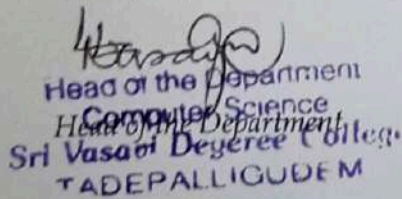 Head of the Department
Computer Science
Head of the Department
Sri Vasavi Degeree College
TADEPALLIGUDEM